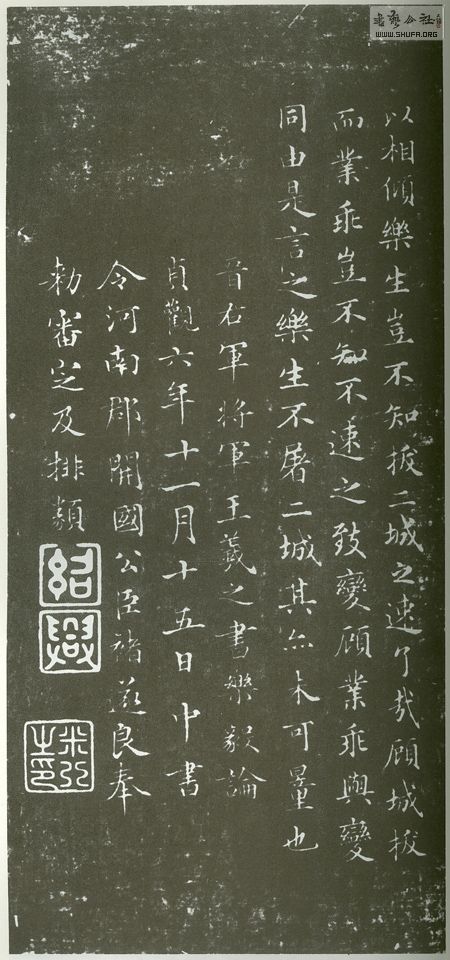 以相傾樂生豈不知拔二城之速了哉顧城拔
而業乖豈不知不速之致變顧業乖與變
同由是言之樂生不屠二城其亦未可量也
晉右軍將軍王羲之書樂毅論
貞觀六年十一月十五日中書
令河南郡開國公臣褚遂良奉
勅審定及排類
紹興
米芾之印
書藝公社
WWW.SHUFA.ORG